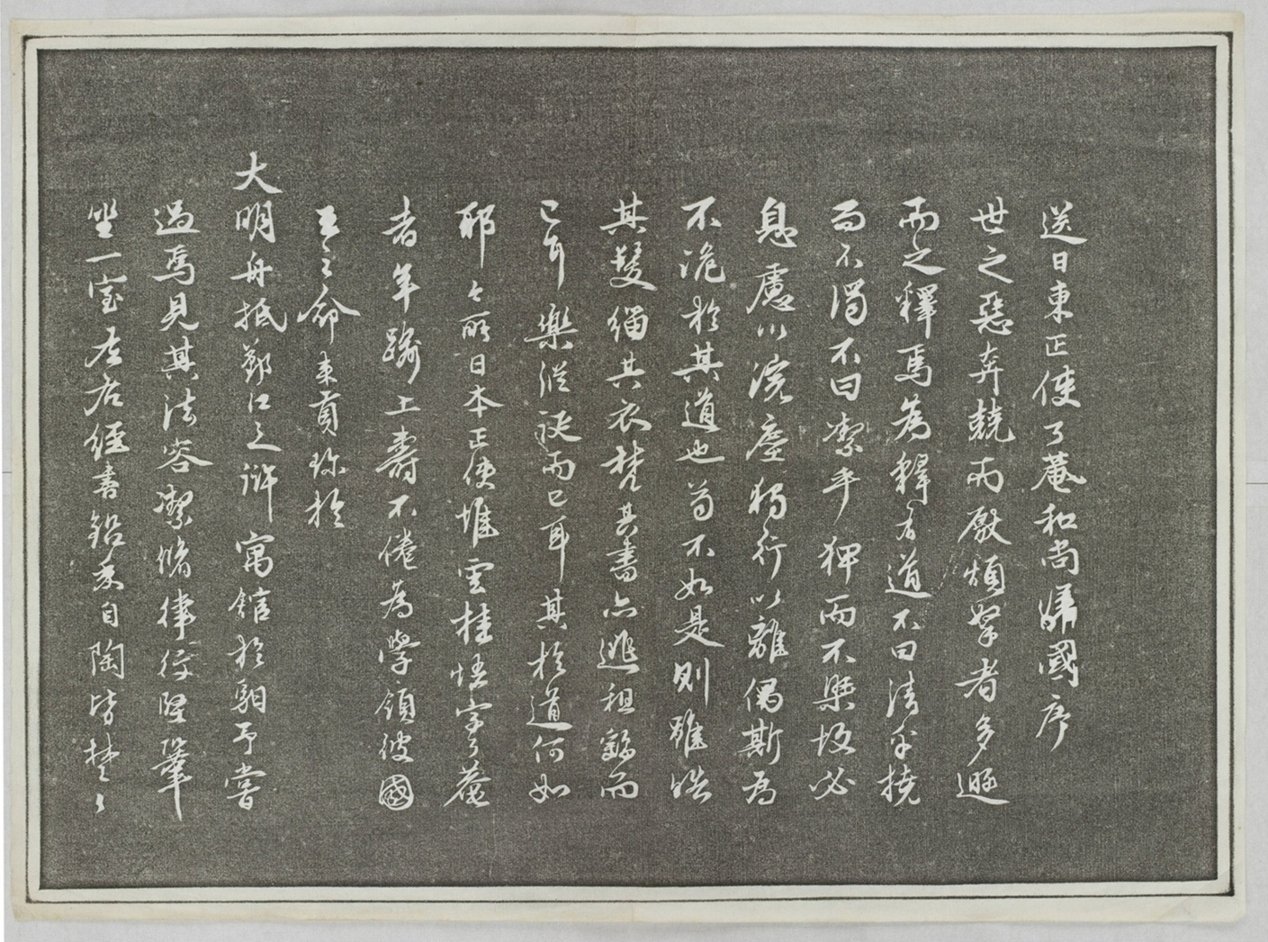 送日東正使了菴和尚歸國序
世之惡奔競而厭煩拏者多遯
而之釋焉為釋有道不曰清乎撓
而不濁不曰潔乎狎而不染故必
息慮以浣塵獨行以離偶斯為
不詭於其道也苟不如是則雖皓
其髮緇其衣梵其書亦逃租繇而
已耳樂縱誕而已耳其於道何如
耶今所日本正使堆雲桂悟字了菴
者年踰上壽不倦為學領彼國
王之命來貢珍於
大明舟抵鄞江之滸寓舘於馹予嘗
過焉見其法容潔脩律行堅鞏
坐一室左右經書鉛朱自陶皆楚々